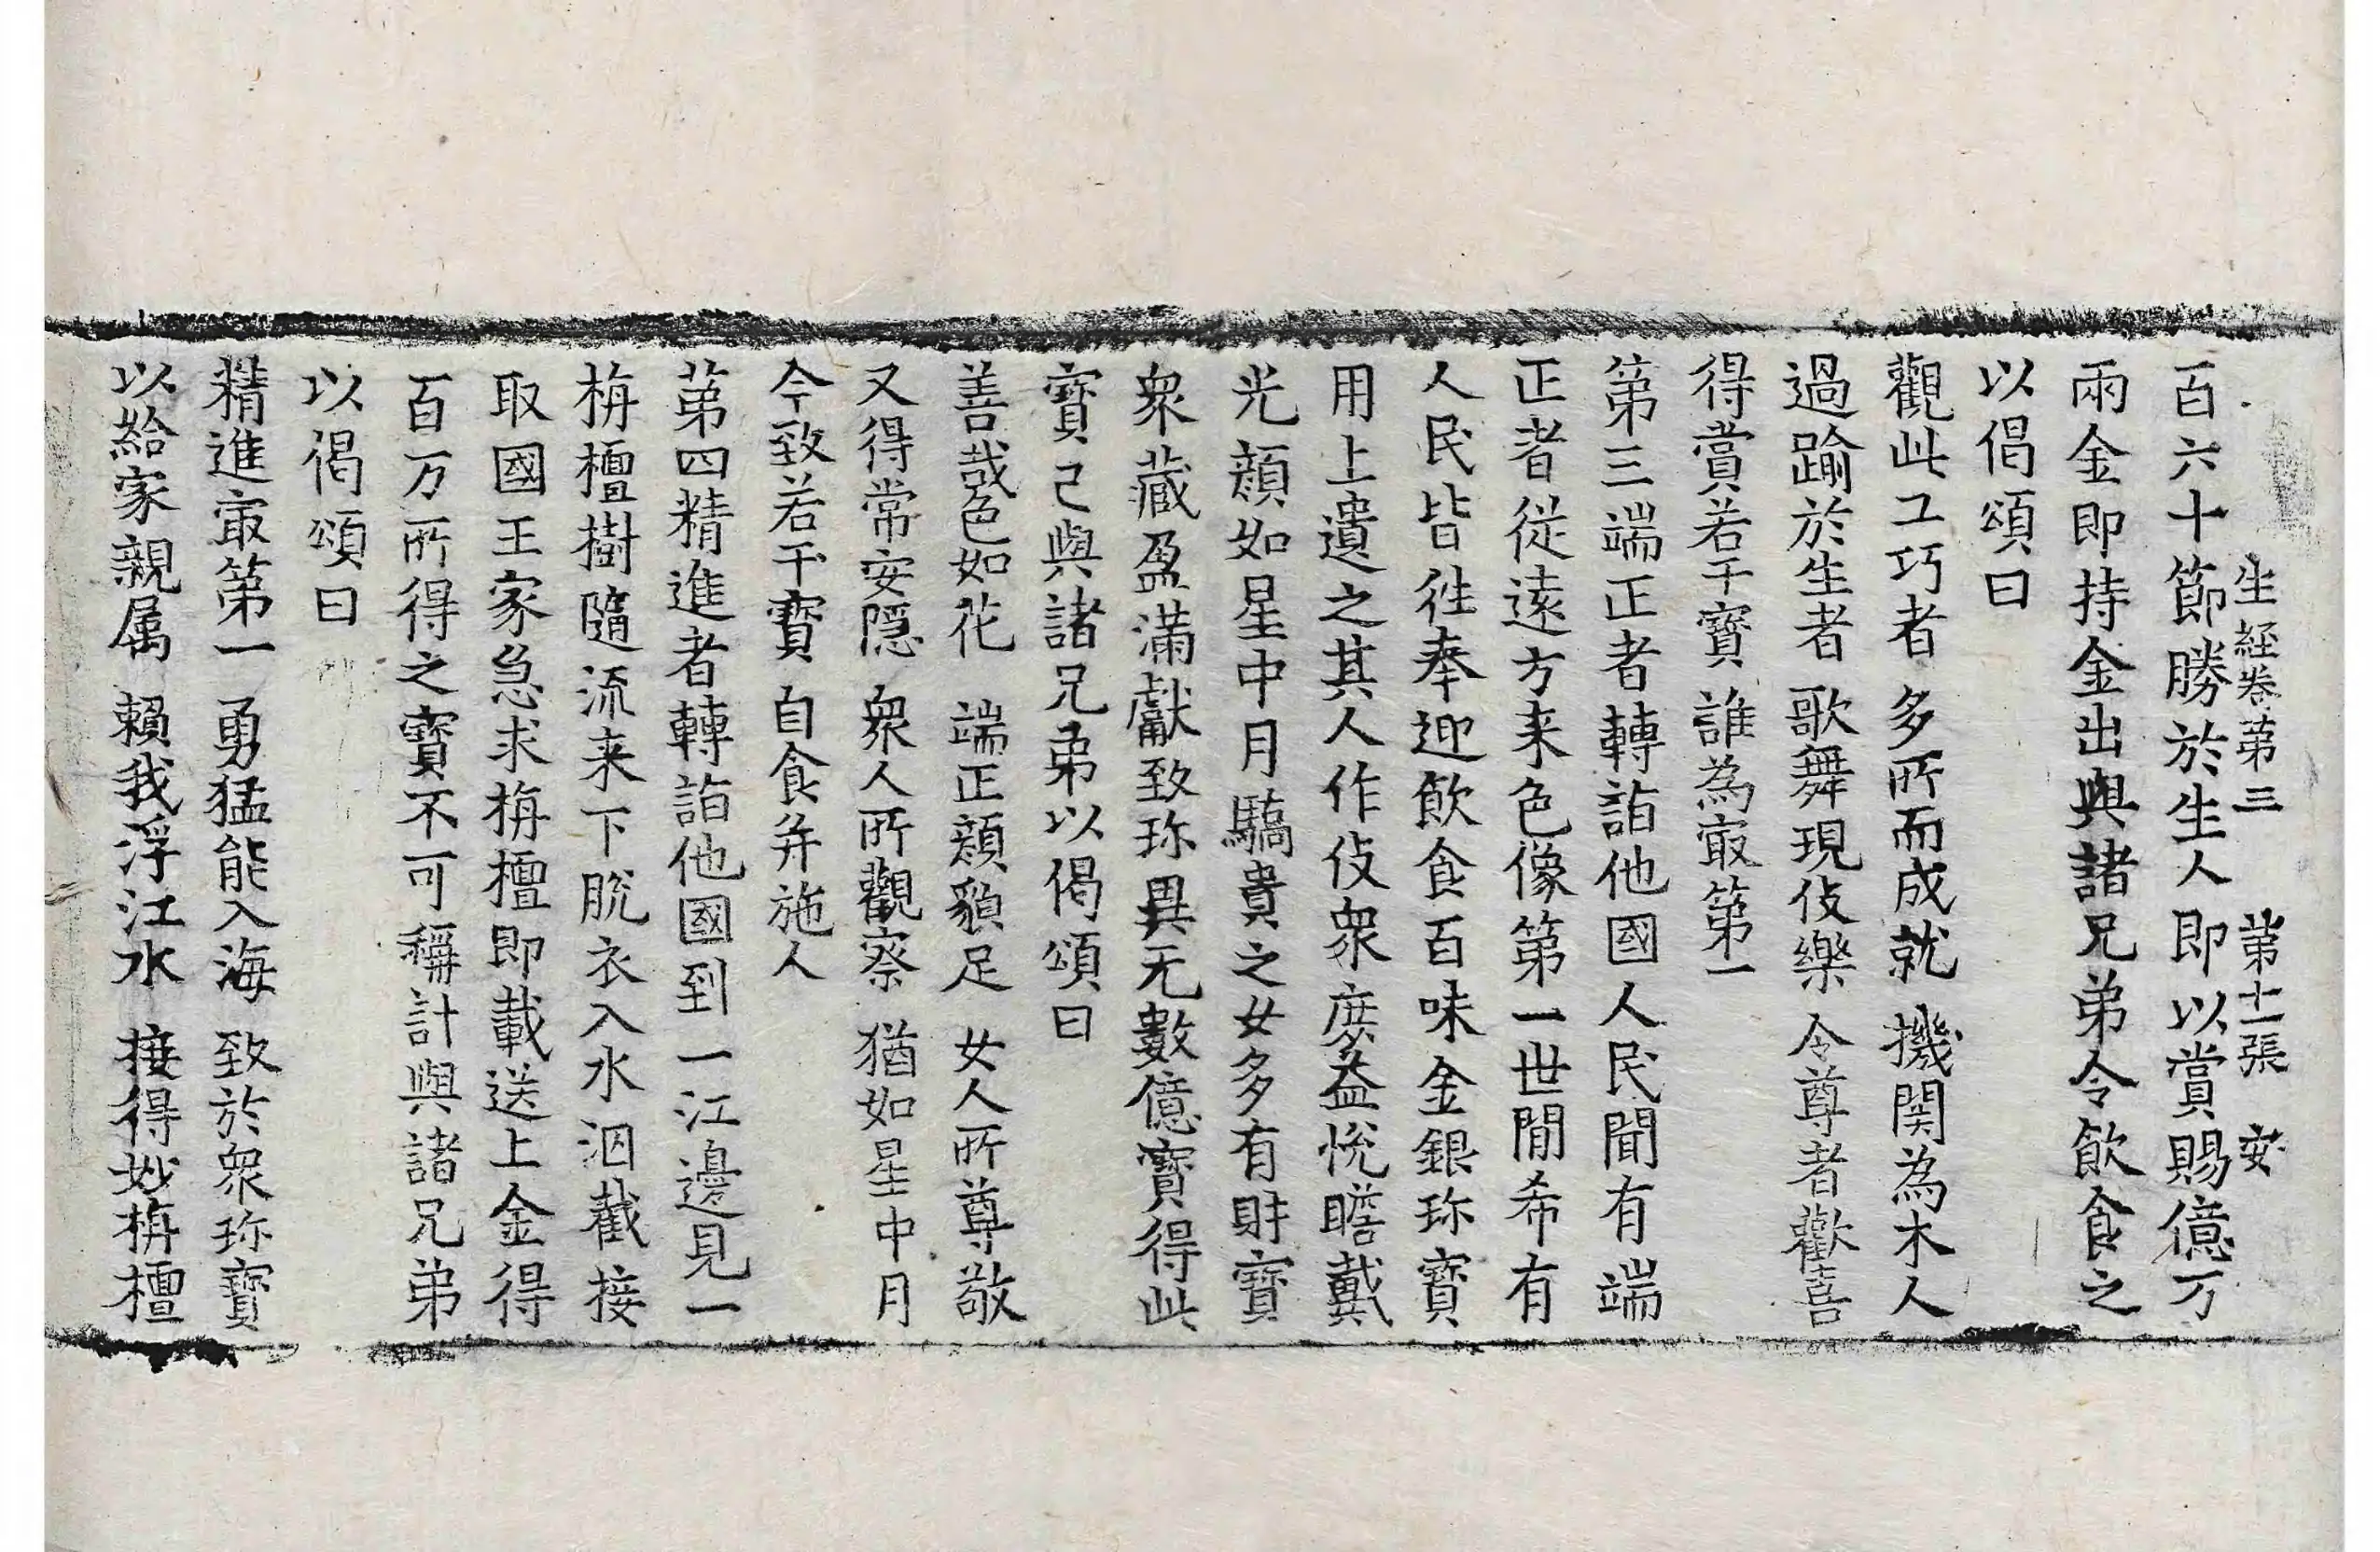 生經卷第三　第十一張　安
百六十節勝於生人即以賞賜億万
兩金即持金出與諸兄弟令飲食之
以偈頌曰
觀此工巧者　多所而成就　機関為木人
過踰於生者　歌舞現伎樂　令尊者歡喜
得賞若干寶　誰為冣第一
第三端正者轉詣他國人民聞有端
正者從遠方来色像第一世間希有
人民皆徃奉迎飲食百味金銀珎寶
用上遺之其人作伎衆庻益恱瞻戴
光顔如星中月驕貴之女多有財寶
衆藏盈滿獻致珎異无數億寶得此
寶已與諸兄弟以偈頌曰
善哉色如花　端正顔貌足　女人所尊敬
又得常安隠　衆人所觀察　猶如星中月
今致若干寶　自食并施人
苐四精進者轉詣他國到一江邊見一
栴檀樹隨流来下脫衣入水泅截接
取國王家急求栴檀即載送上金得
百万所得之寶不可稱計與諸兄弟
以偈頌曰
精進冣第一　勇猛能入海　致於衆珎寶
以給家親属　賴我浮江水　接得妙栴檀